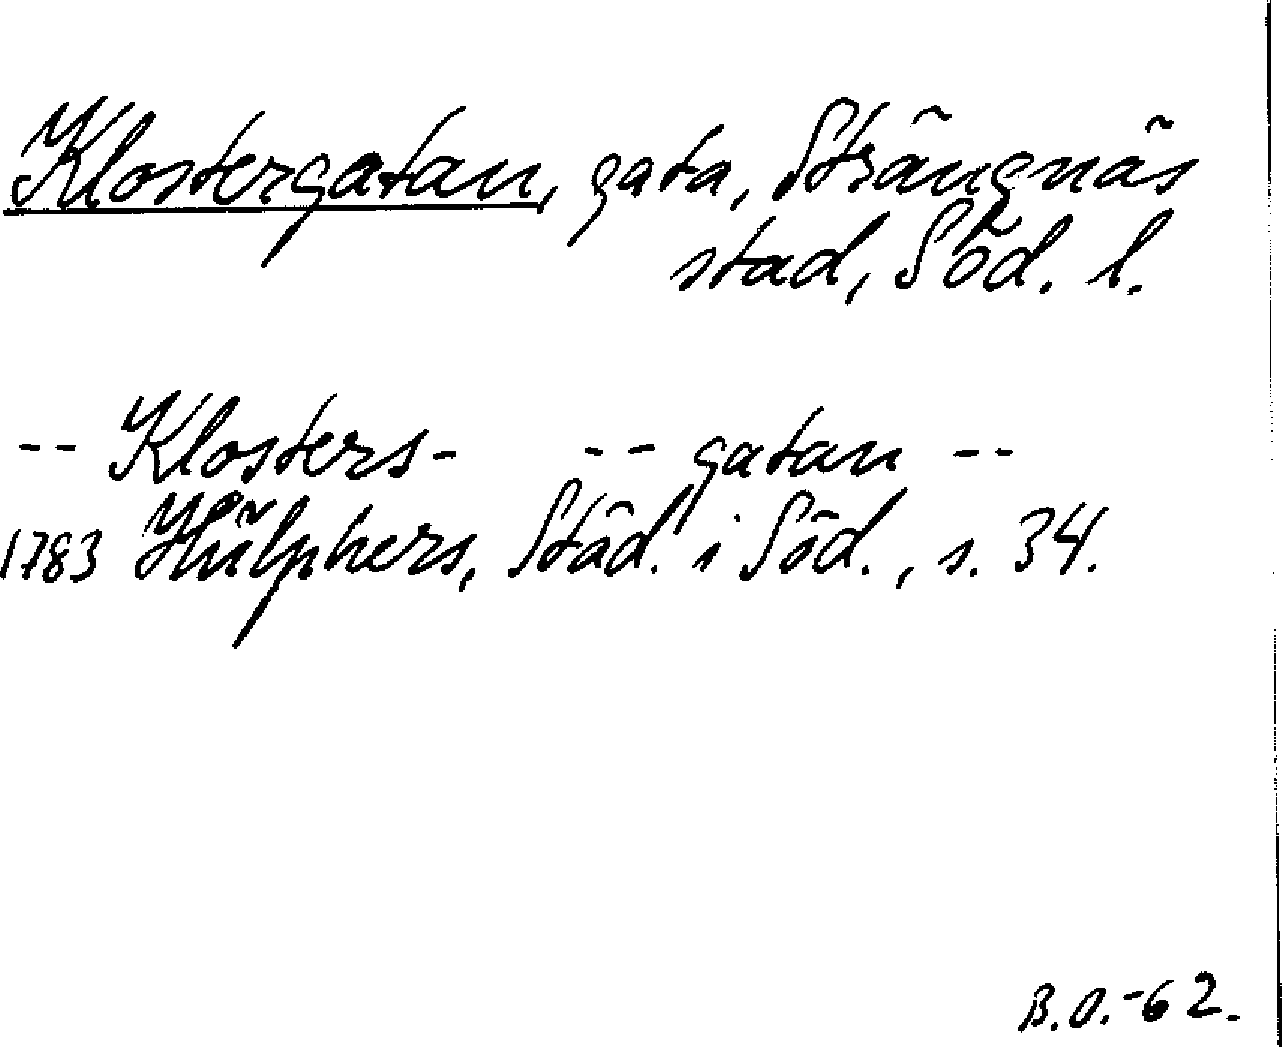 Klostergatan, gata, Strängnäs
stad, Söd. l.
-- Klosters- -- gatan --
1783 Hülphers, Städ. i Söd., s. 34.
B.O.-62.